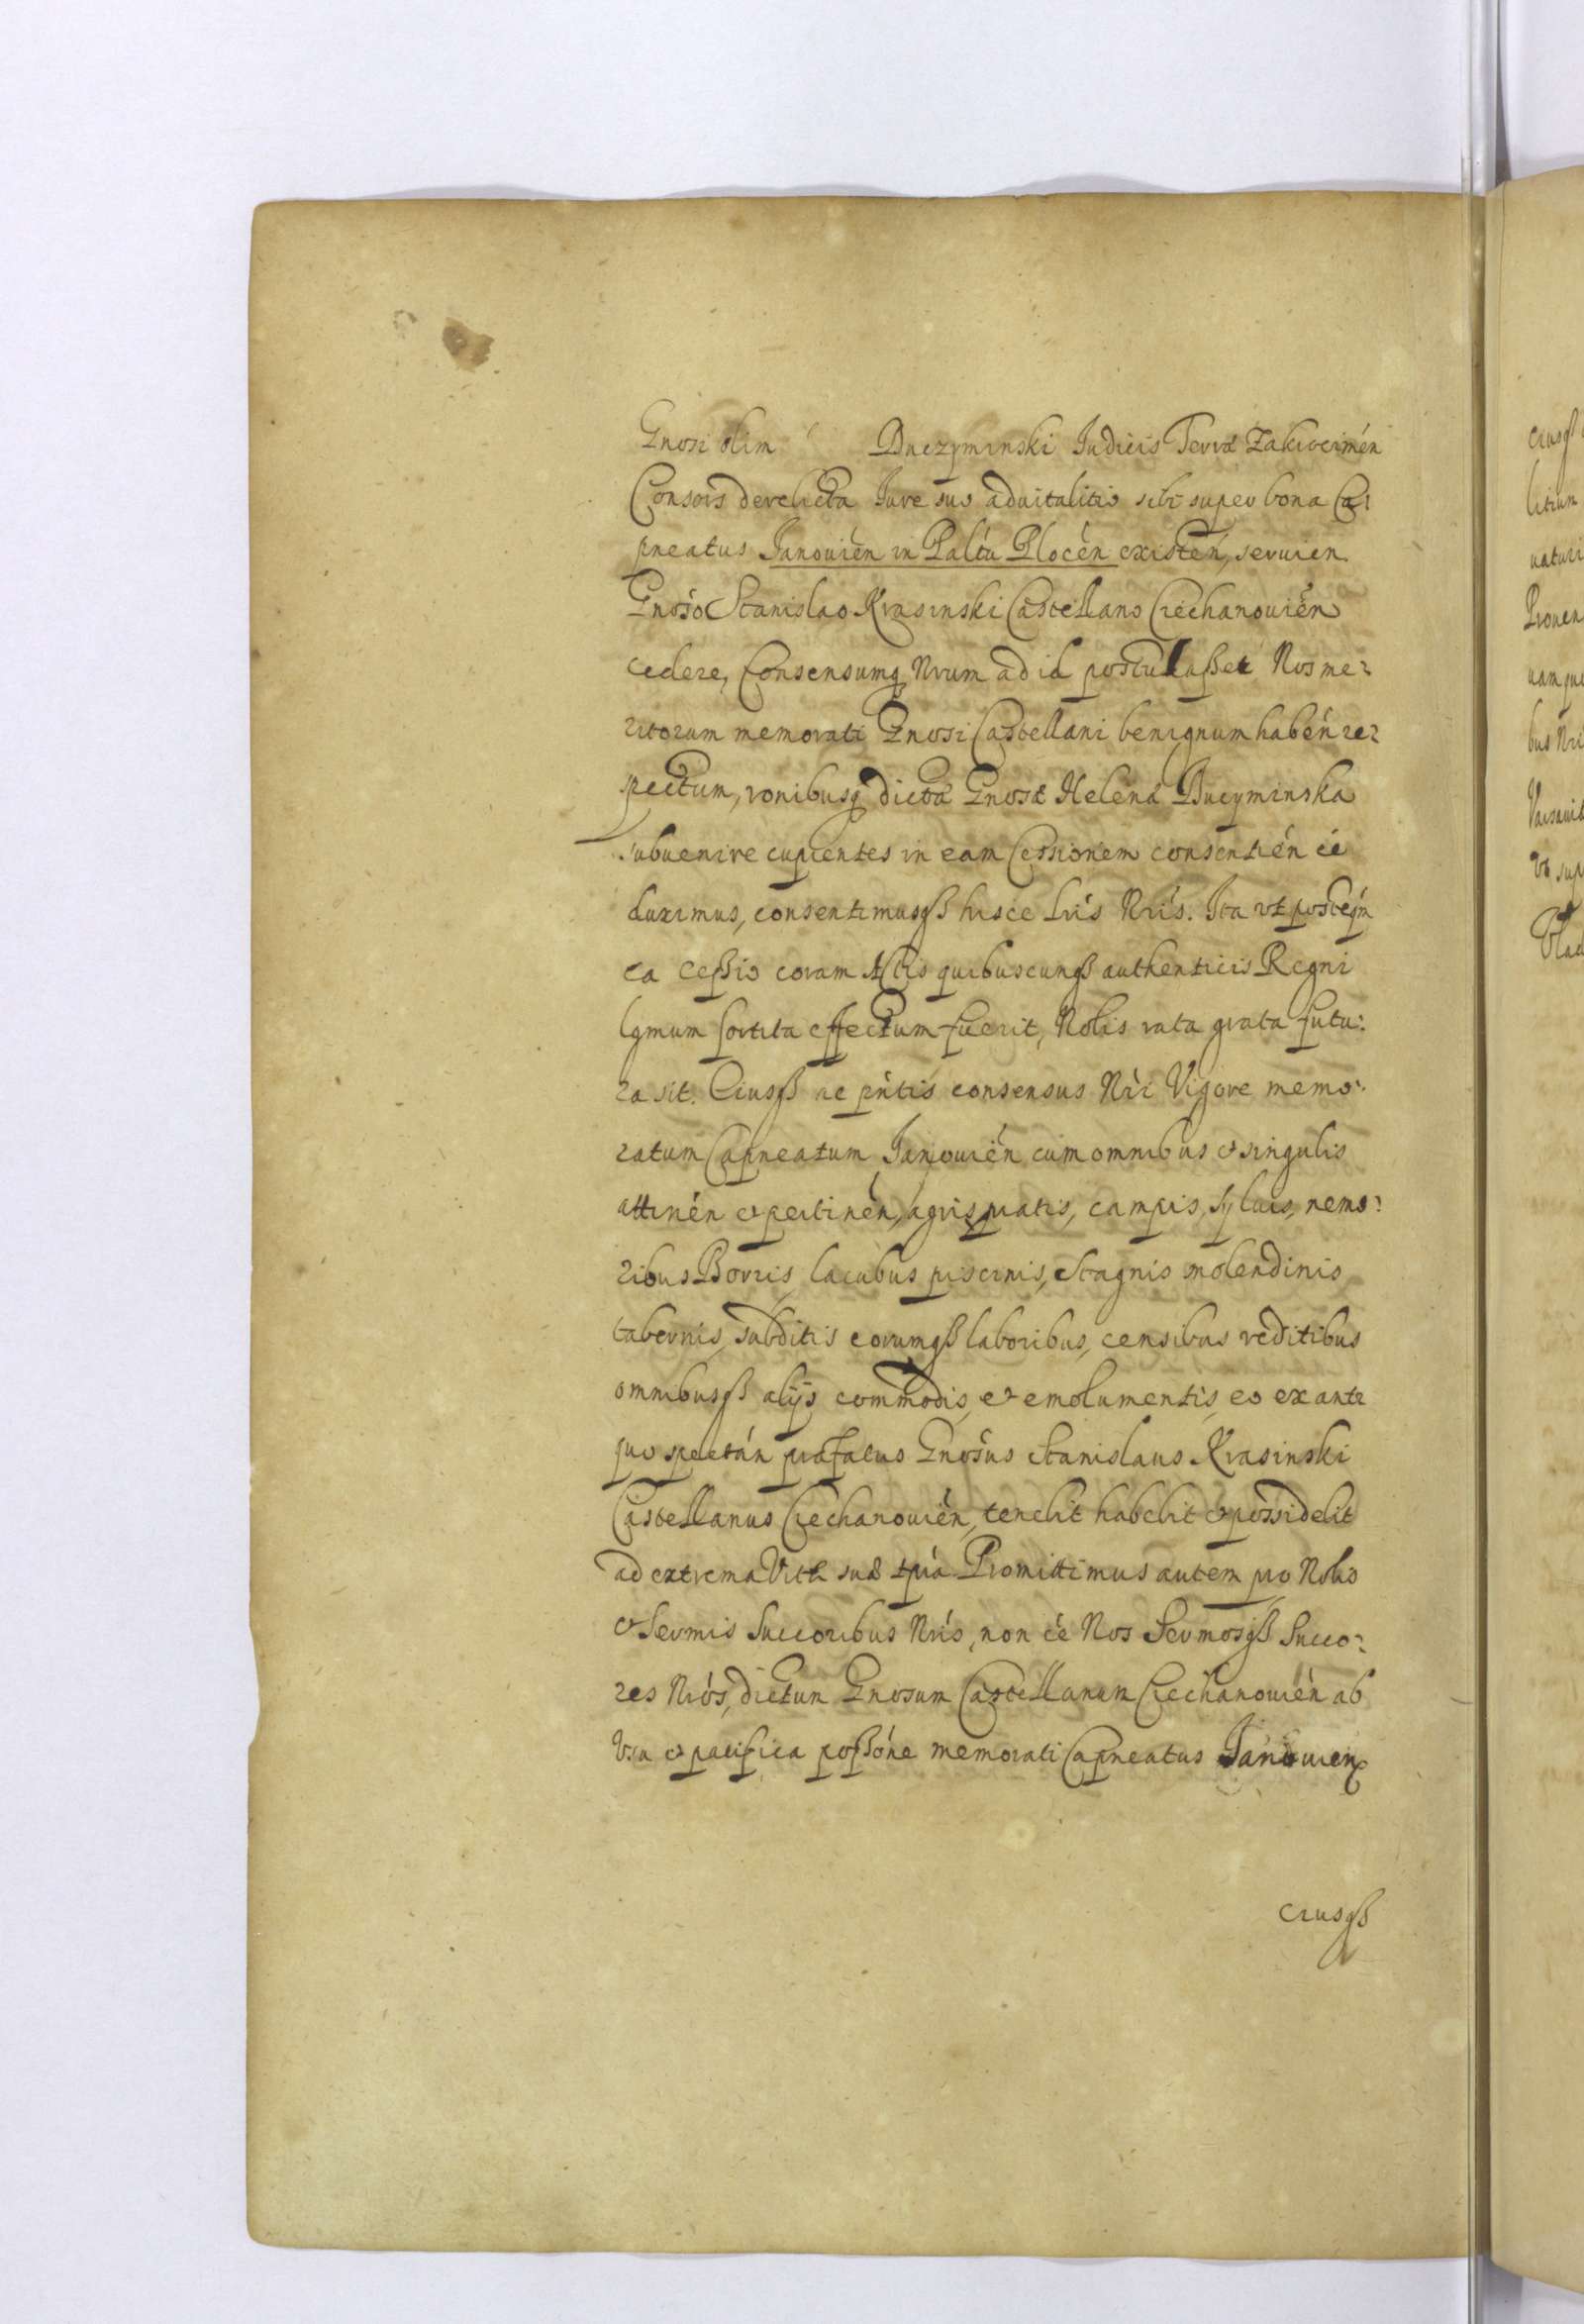 Gnosi olim Duczyminski Iudicis Terræ Zakrocimén
Consors derelicta Iure suo aduitalitio sibi super bona Ca:
pneatus Ianouién in Palŕtu Plocén existén, seruien
Gnóso Stanislao Krasinski Castellano Ciechanouién
cedere, Consensumq́ Nrum ad id postulaßet Nos me:
ritorum memorati Gnosi Castellani benignum habén re:
spectum, ronibusq́ dictæ Gnosæ Helenæ Ducyminska
subuenire cupientes in eam Cessionem consentién eé
duximus, consentimusqß hisce Lrís Nrís. Ita vt posteq́m
ea Ceßio coram Actis quibuscunqß authenticis Regni
lgmum sortita effectum fuerit, Nobis rata grata futu:
ra sit. Eiusqß ac pńtis consensus Nŕi Vigore memo:
ratum Capneatum Ianouién cum omnibus & singulis
attinén & pertinén, agris pratis, campis, syluis, nemo:
ribus Borris, lacubus piscinis, Stagnis molendinis
tabernis, subditis eorumqß laboribus, censibus reditibus
omnibusqß alijs commodis, & emolumentis, eo ex anti
quo spectán præfatus Gnósus Stanislaus Krasinski
Castellanus Ciechanouién, tenebit habebit & possidebit
ad extrema Vitæ suæ tpŕa Promittimus autem pro Nobis
& Sermis Succoribus Nrís, non eé Nos Sermosqß Succo:
res Nrós, dictum Gnosum Castellanum Ciechanouién ab
Vsu & pacifica poßóne memorati Capneatus Ianouien
eiusqß